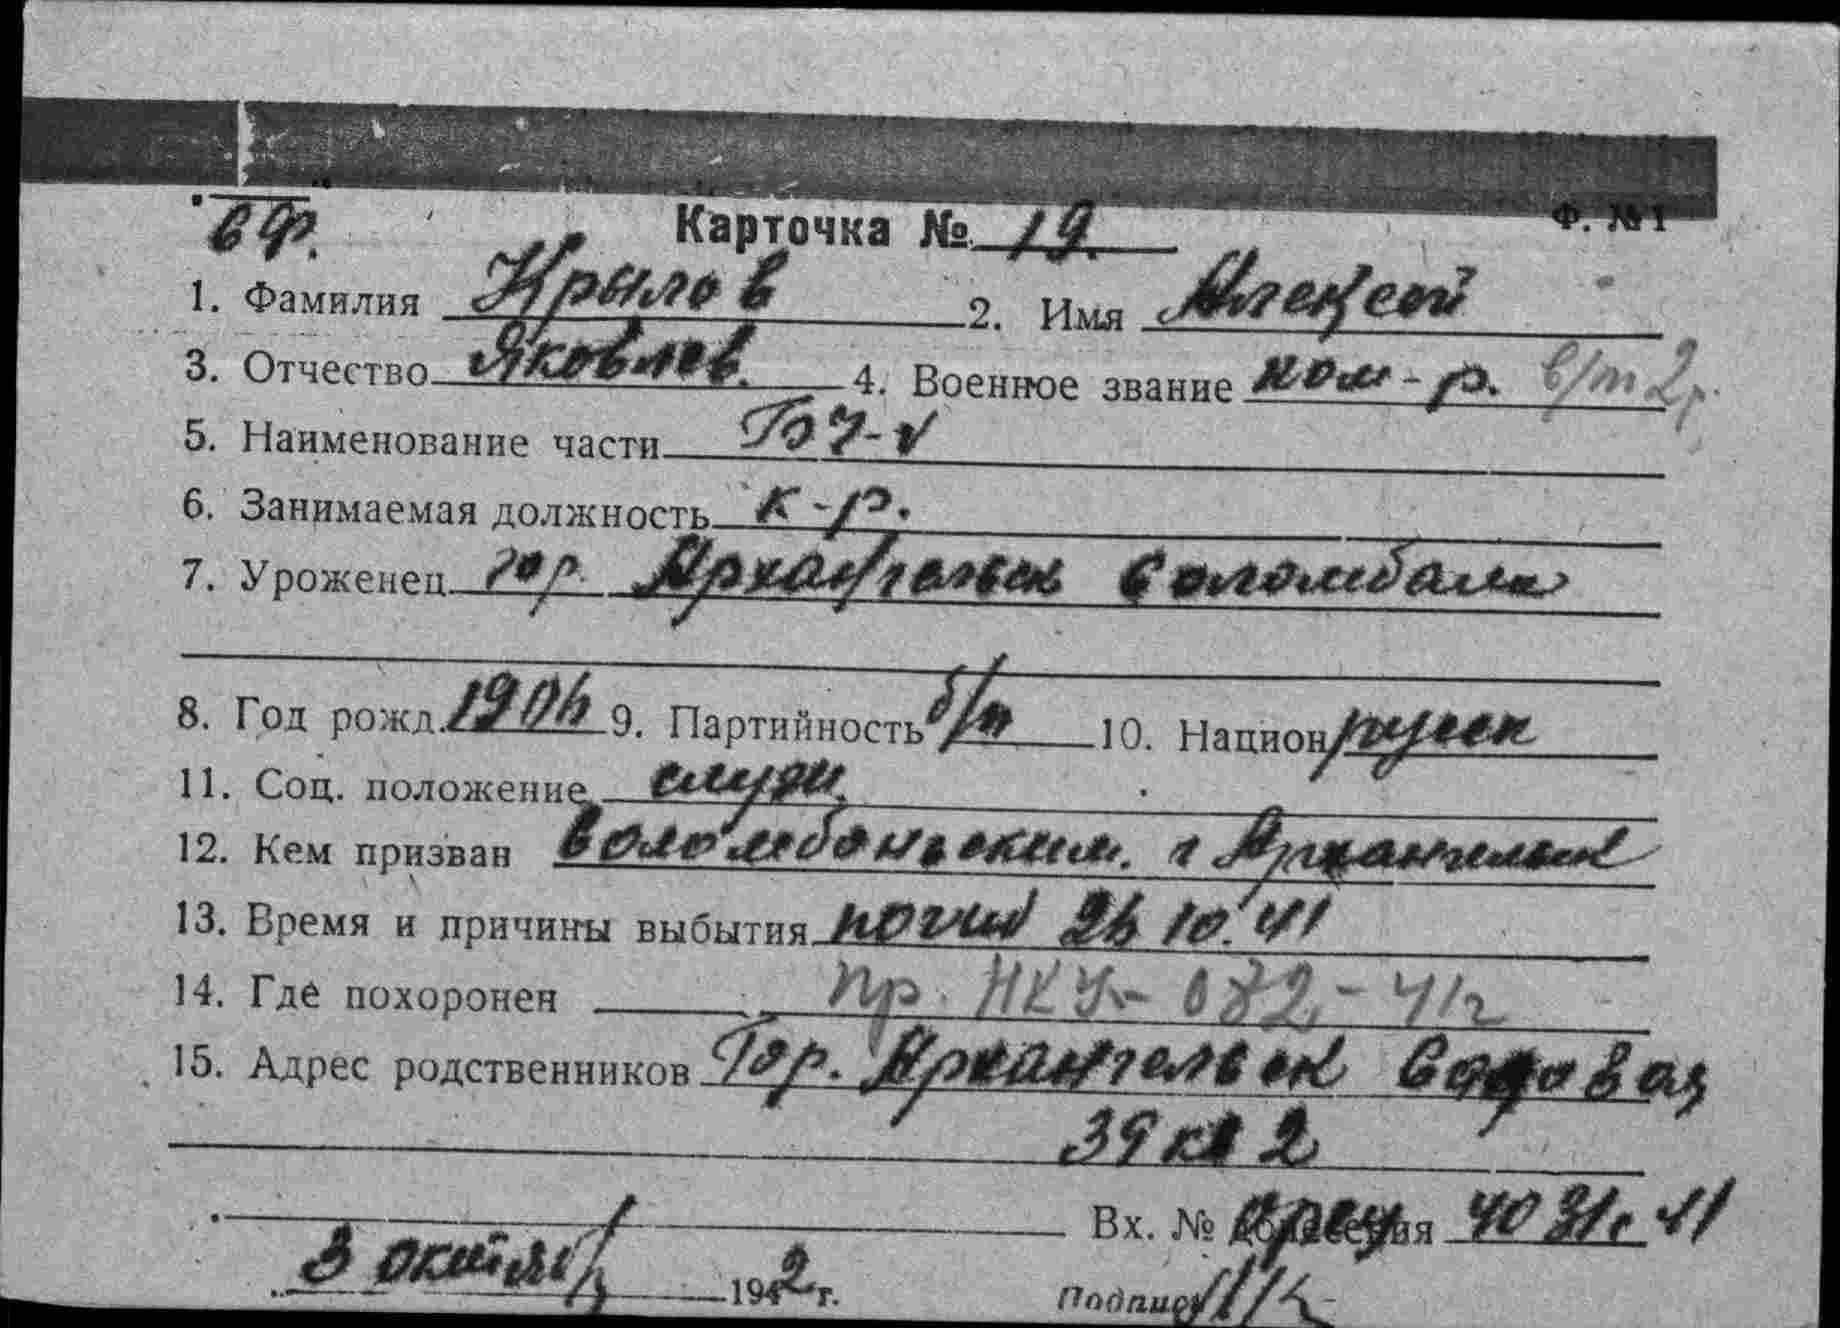 Ф. №1
СФ. Карточка № 19.
1. Фамилия Крылов 2. Имя Алексей
3. Отчество Яковлев. 4. Военное звание ком-р. в/т 2 р.
5. Наименование части БЧ-V
6. Занимаемая должность к-р.
7. Уроженец гор. Архангельск Соломбала
8. Год рожд. 1904 9. Партийность б/п 10. Национ русск
11. Соц. положение служ.
12. Кем призван Соломбаньским. г Архангельск
13. Время и причины выбытия погиб 10. 41
14. Где похоронен пр. НКУ- 072 - 41г
15. Адрес родственников Гор. Архангельск Садовая
39 кв 2
Вх. № донесения
3 октяб 1942 г. Подпись